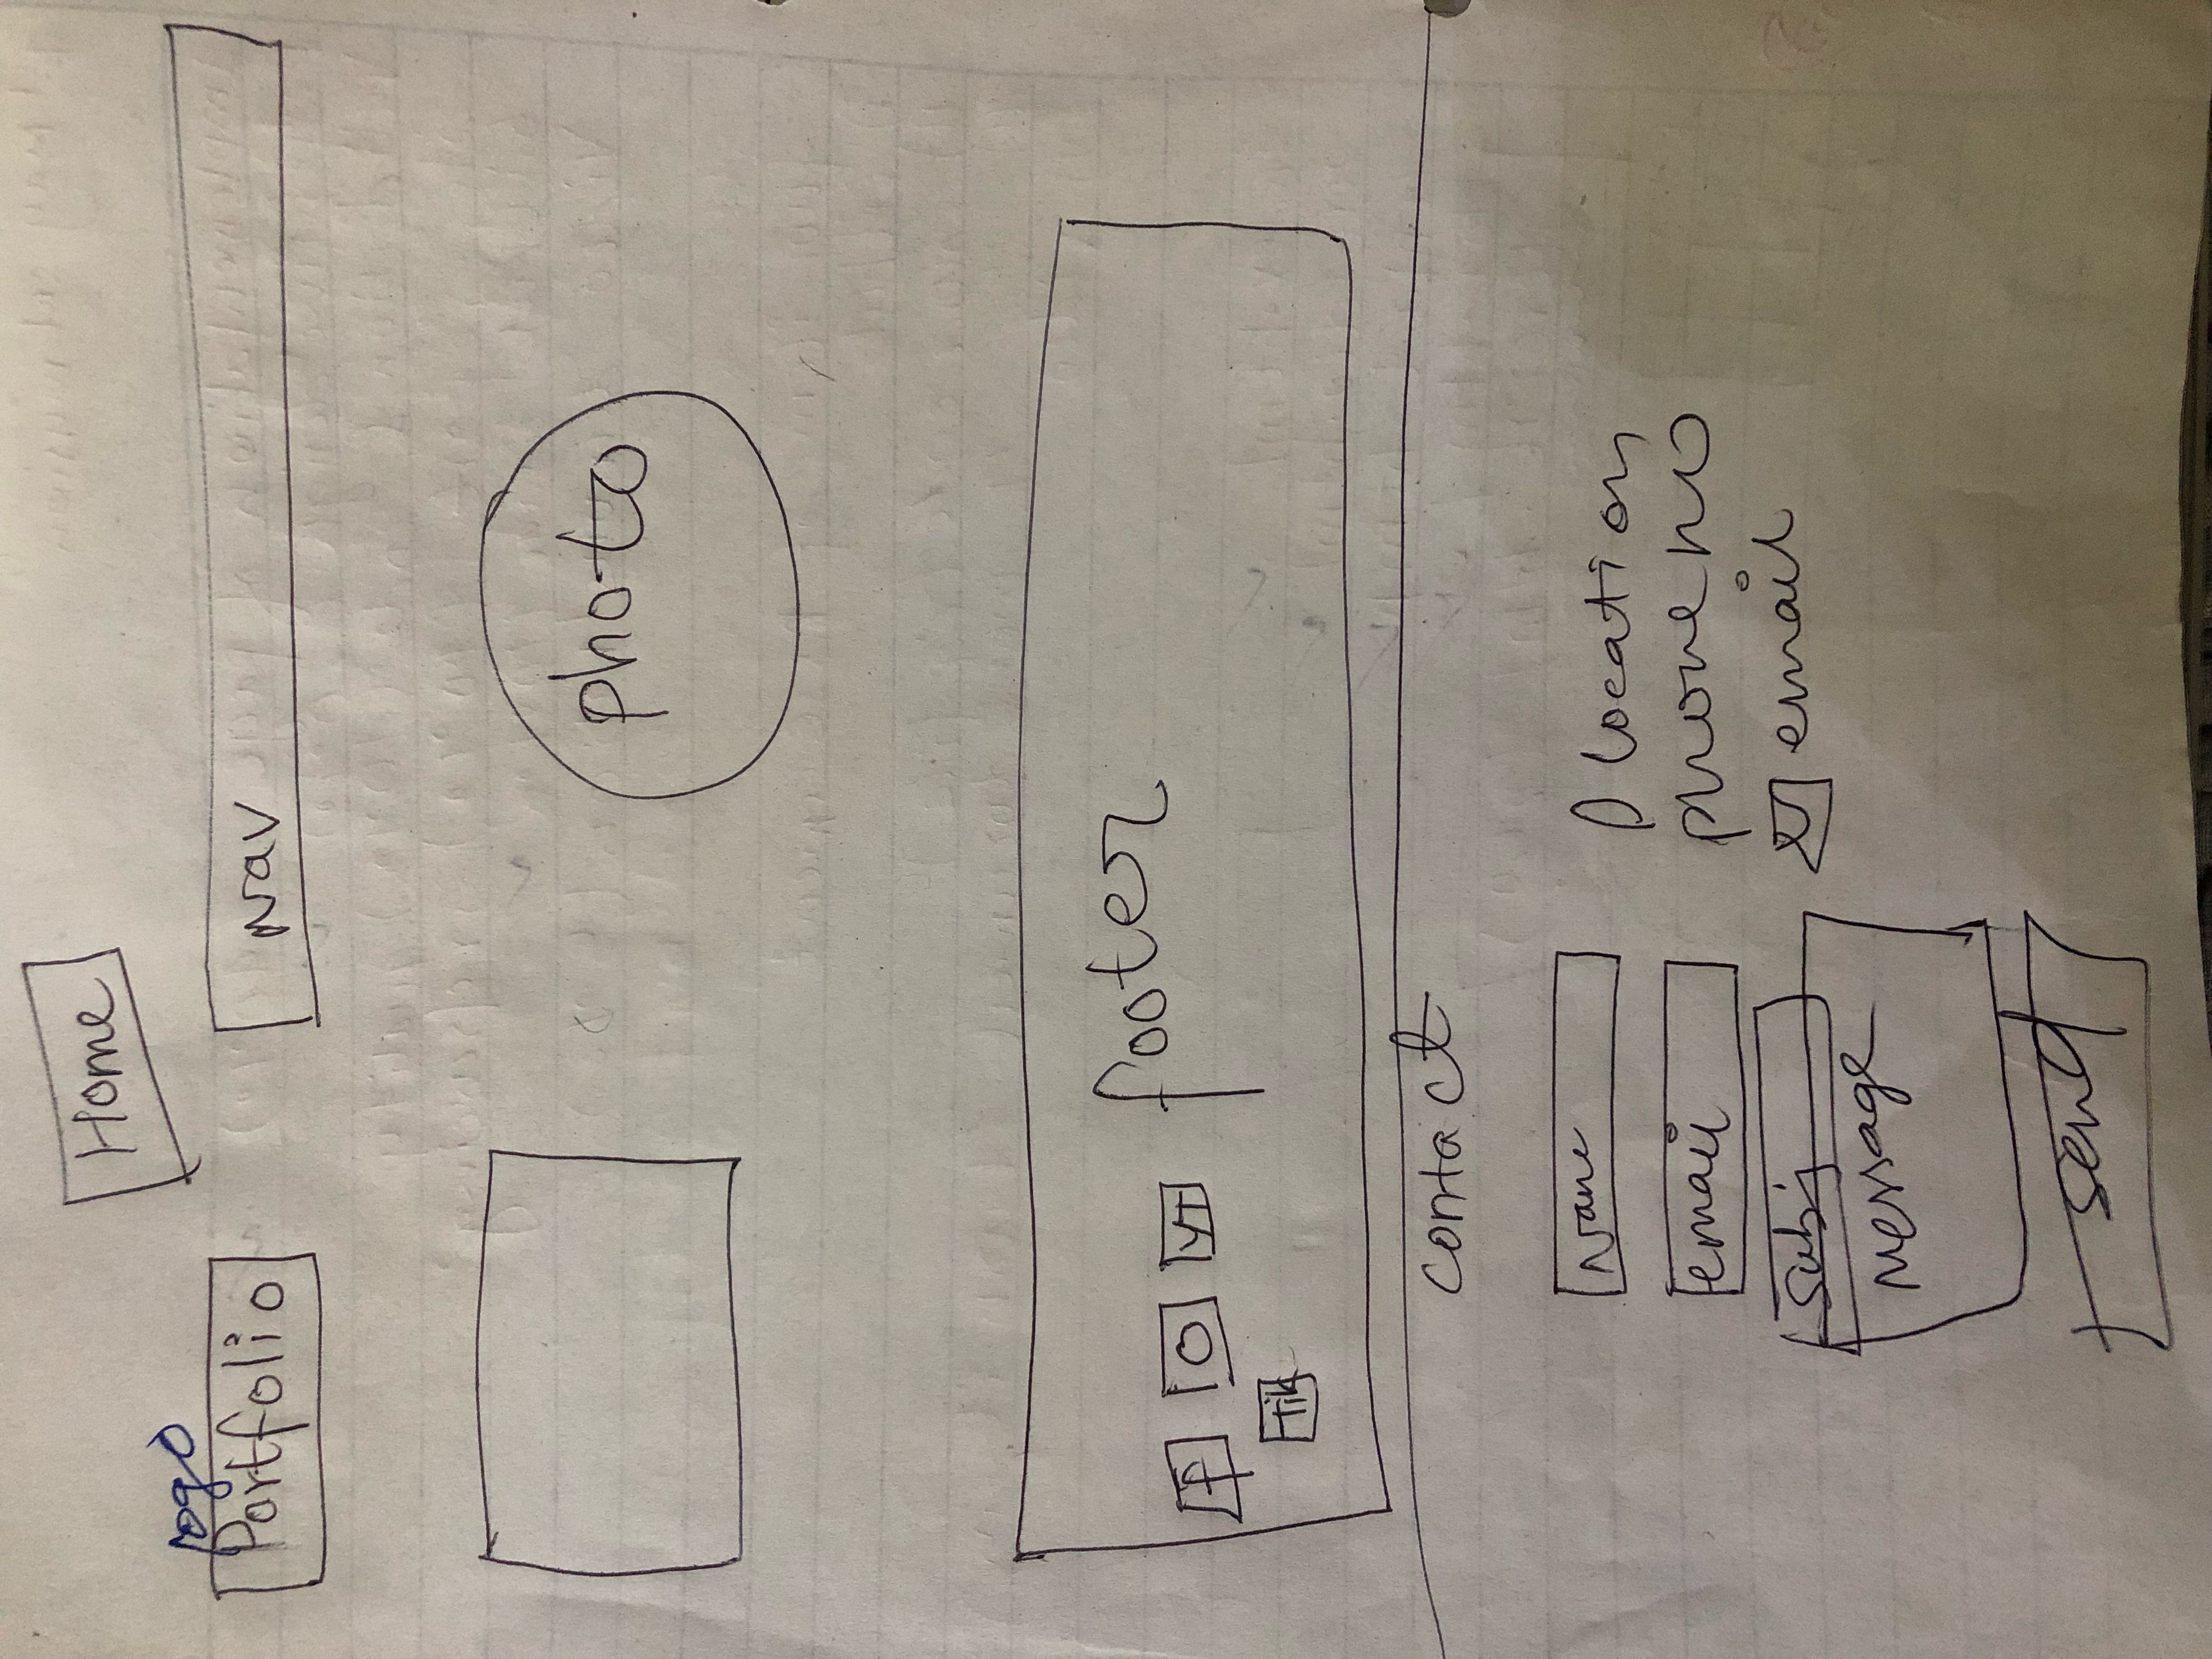 Home
logo
Portfolio
nav
photo
footer
f O YT
Tik
contact
Name
email
subj
message
send
location
phone no
email